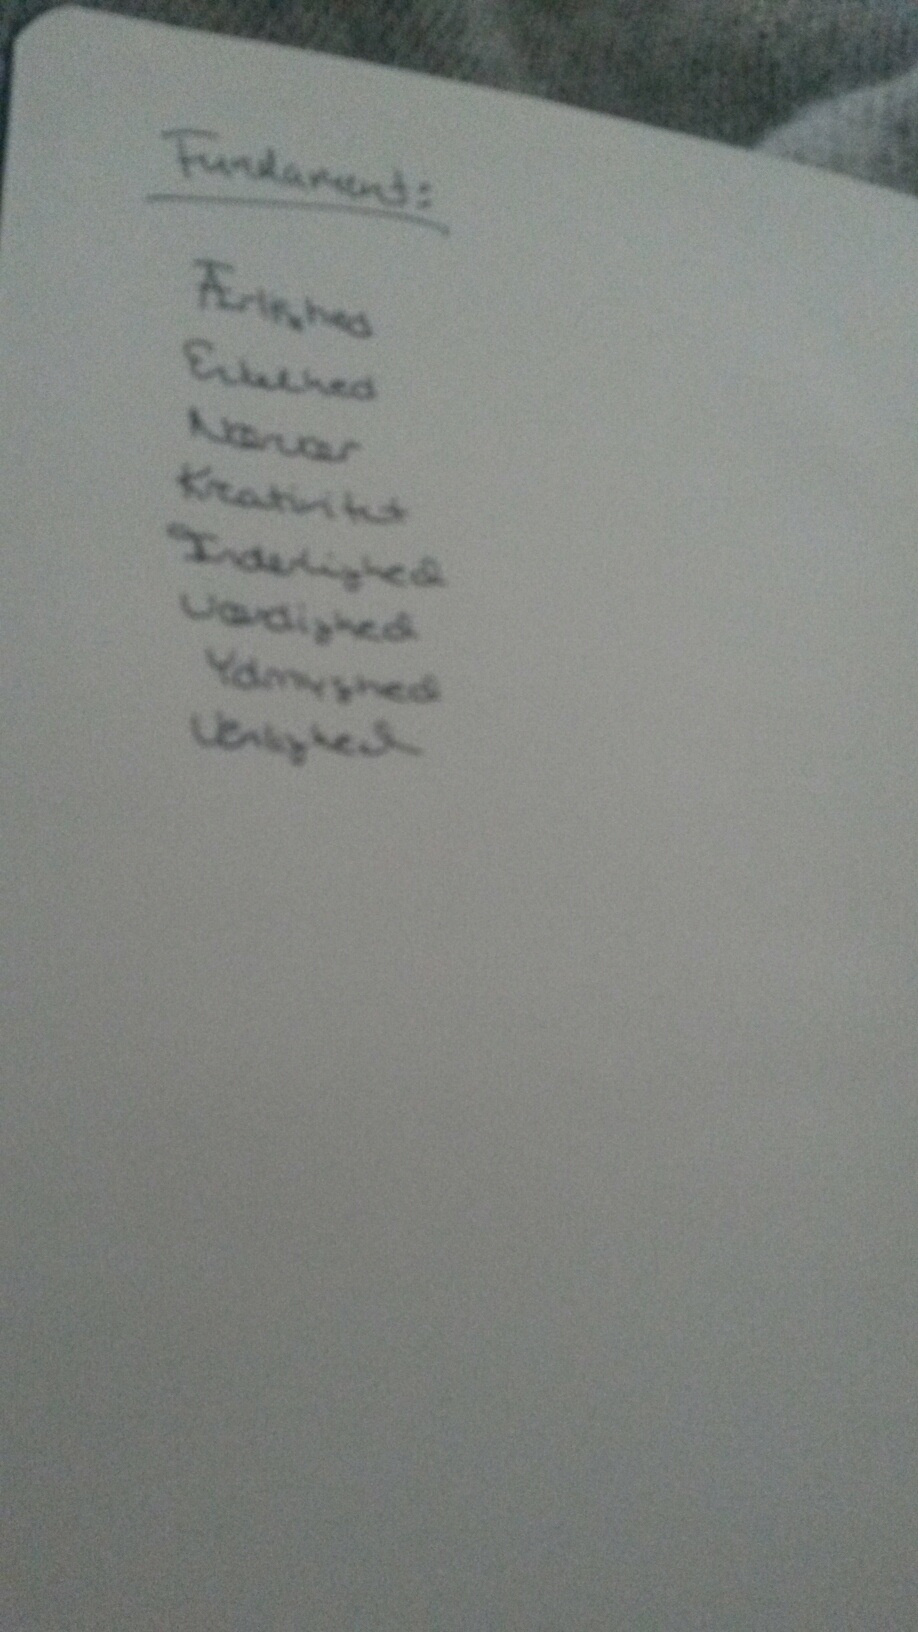 Fundament:
Ærlighed
Enkelhed
Nærvær
Kreativitet
Inderlighed
Værdighed
Ydmyghed
Venlighed